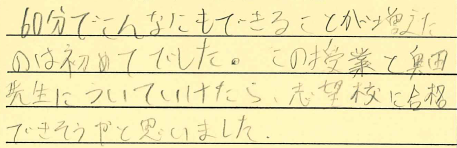 60分でこんなにもできることが増えた
のは初めてでした。この授業と奥田
先生についていけたら、志望校に合格
できそうだと思いました.